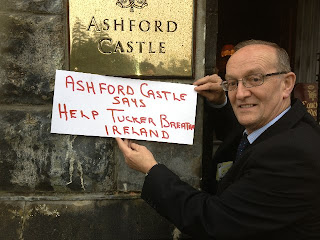 ASHFORD
CASTLE
ASHFORD CASTLE
SAYS
HELP TUCKER BREATHE
IRELAND